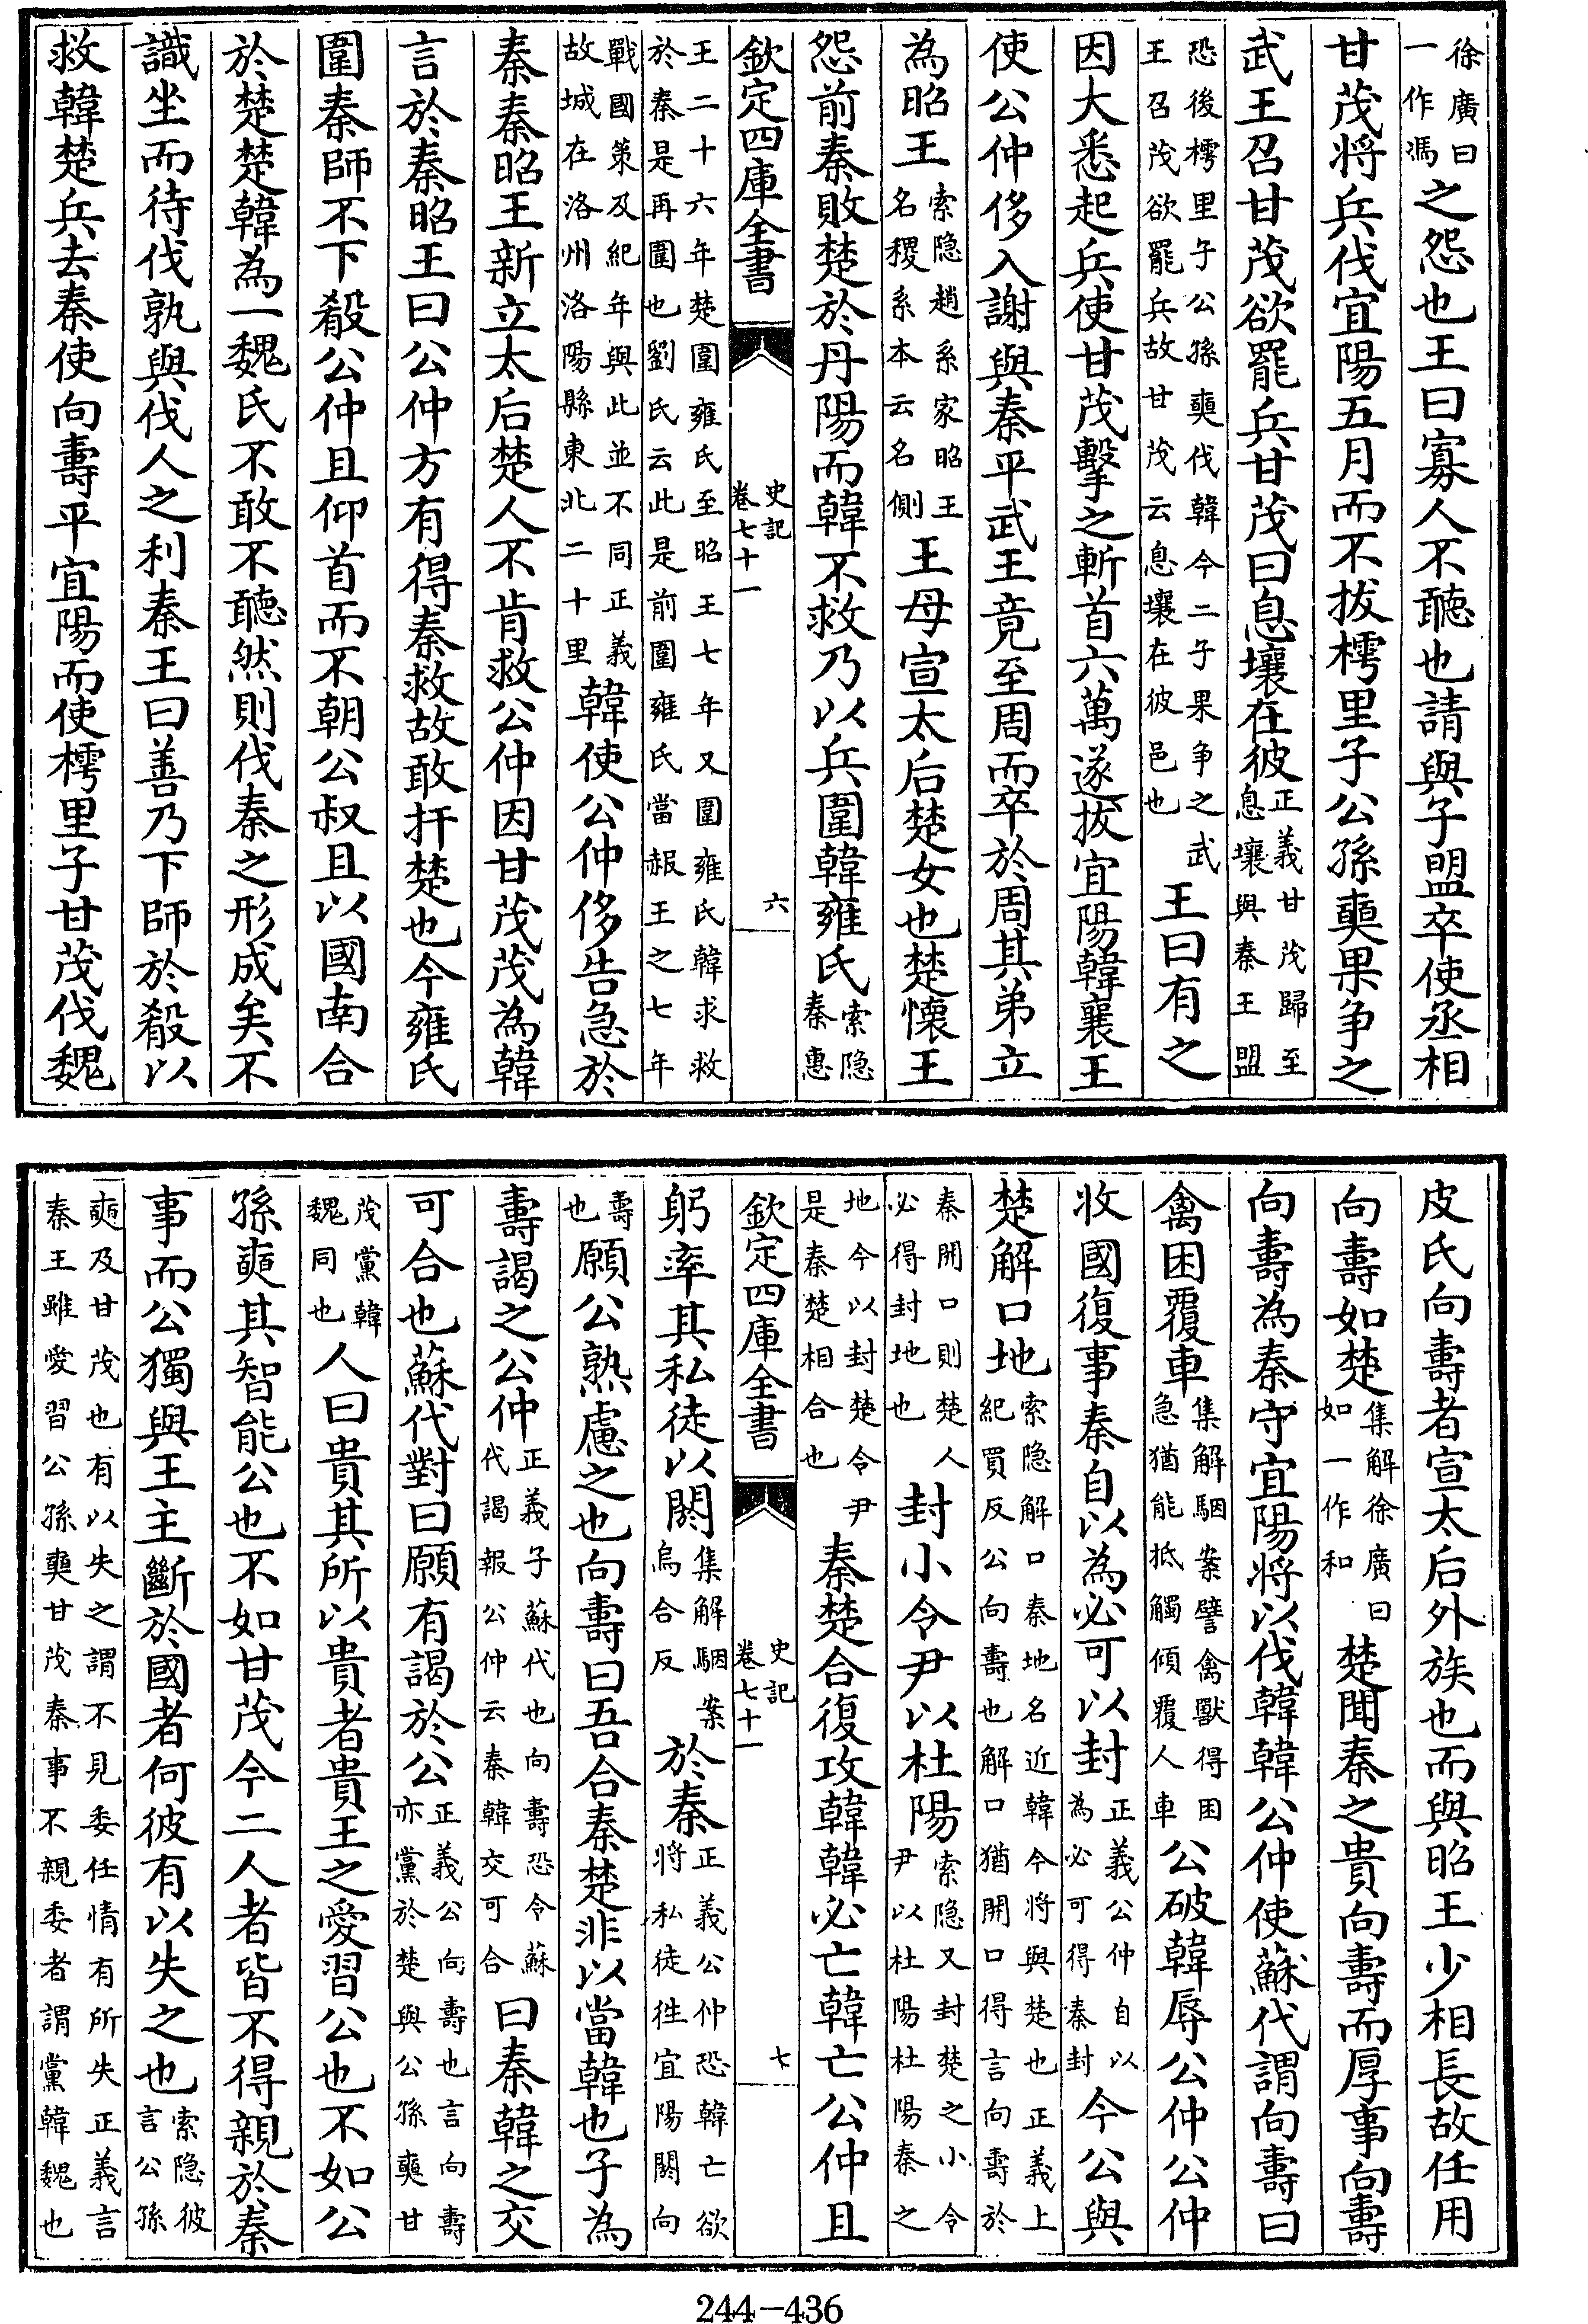 徐廣曰一作馮之怨也王曰寡人不聽也請與子盟卒使丞相
甘茂將兵伐宜陽五月而不拔樗里子公孫奭果爭之
武王召甘茂欲罷兵甘茂曰息壤在彼正義甘茂歸至息壤與秦王盟
恐後樗里子公孫奭伐韓今二子果爭之武王召茂欲罷兵故甘茂云息壤在彼邑也王曰有之
因大悉起兵使甘茂擊之斬首六萬遂拔宜陽韓襄王
使公仲侈入謝與秦平武王竟至周而卒於周其弟立
為昭王索隱趙系家昭王名稷系本云名側王母宣太后楚女也楚懷王
怨前秦敗楚於丹陽而韓不救乃以兵圍韓雍氏索隱秦惠
欽定四庫全書 史記卷七十一 六
王二十六年楚圍雍氏至昭王七年又圍雍氏韓求救於秦是再圍也劉氏云此是前圍雍氏當赧王之七年
戰國策及紀年與此並不同正義故城在洛州洛陽縣東北二十里韓使公仲侈告急於
秦秦昭王新立太后楚人不肯救公仲因甘茂茂為韓
言於秦昭王曰公仲方有得秦救故敢扞楚也今雍氏
圍秦師不下殽公仲且仰首而不朝公叔且以國南合
於楚楚韓為一魏氏不敢不聽然則伐秦之形成矣不
識坐而待伐孰與伐人之利秦王曰善乃下師於殽以
救韓楚兵去秦使向壽平宜陽而使樗里子甘茂伐魏
皮氏向壽者宣太后外族也而與昭王少相長故任用
向壽如楚集解徐廣曰如一作和楚聞秦之貴向壽而厚事向壽
向壽為秦守宜陽將以伐韓韓公仲使蘇代謂向壽曰
禽困覆車集解駰案譬禽獸得困急猶能抵觸傾覆人車公破韓辱公仲公仲
收國復事秦自以為必可以封正義公仲自以為必可得秦封今公與
楚解口地索隱解口秦地名近韓今將與楚也正義上紀買反公向壽也解口猶開口得言向壽於
秦開口則楚人必得封地也封小令尹以杜陽索隱又封楚之小令尹以杜陽杜陽秦之
地今以封楚令尹是秦楚相合也秦楚合復攻韓韓必亡韓亡公仲且
欽定四庫全書 史記卷七十一 七
躬率其私徒以閼集解駰案烏合反於秦正義公仲恐韓亡欲將私徒往宜陽閼向
壽也願公熟慮之也向壽曰吾合秦楚非以當韓也子為
壽謁之公仲正義子蘇代也向壽恐令蘇代謁報公仲云秦韓交可合曰秦韓之交
可合也蘇代對曰願有謁於公正義公向壽也言向壽亦黨於楚與公孫奭甘
茂黨韓魏同也人曰貴其所以貴者貴王之愛習公也不如公
孫奭其智能公也不如甘茂今二人者皆不得親於秦
事而公獨與王主斷於國者何彼有以失之也索隱彼言公孫
奭及甘茂也有以失之謂不見委任情有所失正義言秦王雖愛習公孫奭甘茂秦事不親委者謂黨韓魏也
244-436